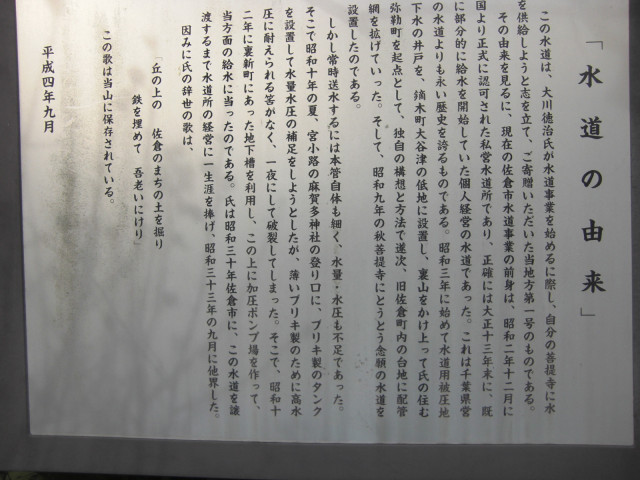 「水道の由来」
この水道は、大川徳治氏が水道事業を始めるに際し、自分の菩提寺に水
を供給しようと志を立て、ご寄贈いただいた当地方第一号のものである。
その由来を見るに、現在の佐倉市水道事業の前身は、昭和二年十二月に
国より正式に認可された私営水道所であり、正確には大正十三年末に、既
に部分的に給水を開始していた個人経営の水道であった。これは千葉県営
の水道よりも永い歴史を誇るものである。昭和三年に始めて水道用被圧地
下水の井戸を、鏑木町大谷津の低地に設置し、裏山をかけ上って氏の住む
弥勒町を起点として、独自の構想と方法で逐次、旧佐倉町内の台地に配管
網を拡げていった。そして、昭和九年の秋菩提寺にとうとう念願の水道を
設置したのである。
しかし常時送水するには本管自体も細く、水量・水圧も不足であった。
そこで昭和十年の夏、宮小路の麻賀多神社の登り口に、ブリキ製のタンク
を設置して水量水圧の補足をしようとしたが、薄いブリキ製のために高水
圧に耐えられる筈がなく、一夜にして破裂してしまった。そこで、昭和十
二年に裏新町にあった地下槽を利用し、この上に加圧ポンプ場を作って、
当方面の給水に当ったのである。氏は昭和三十年佐倉市に、この水道を譲
渡するまで水道所の経営に一生涯を捧げ、昭和三十三年の九月に他界した。
因みに氏の辞世の歌は、
「丘の上の 佐倉のまちの土を掘り
鉄を埋めて 吾老いにけり」
この歌は当山に保存されている。
平成四年九月